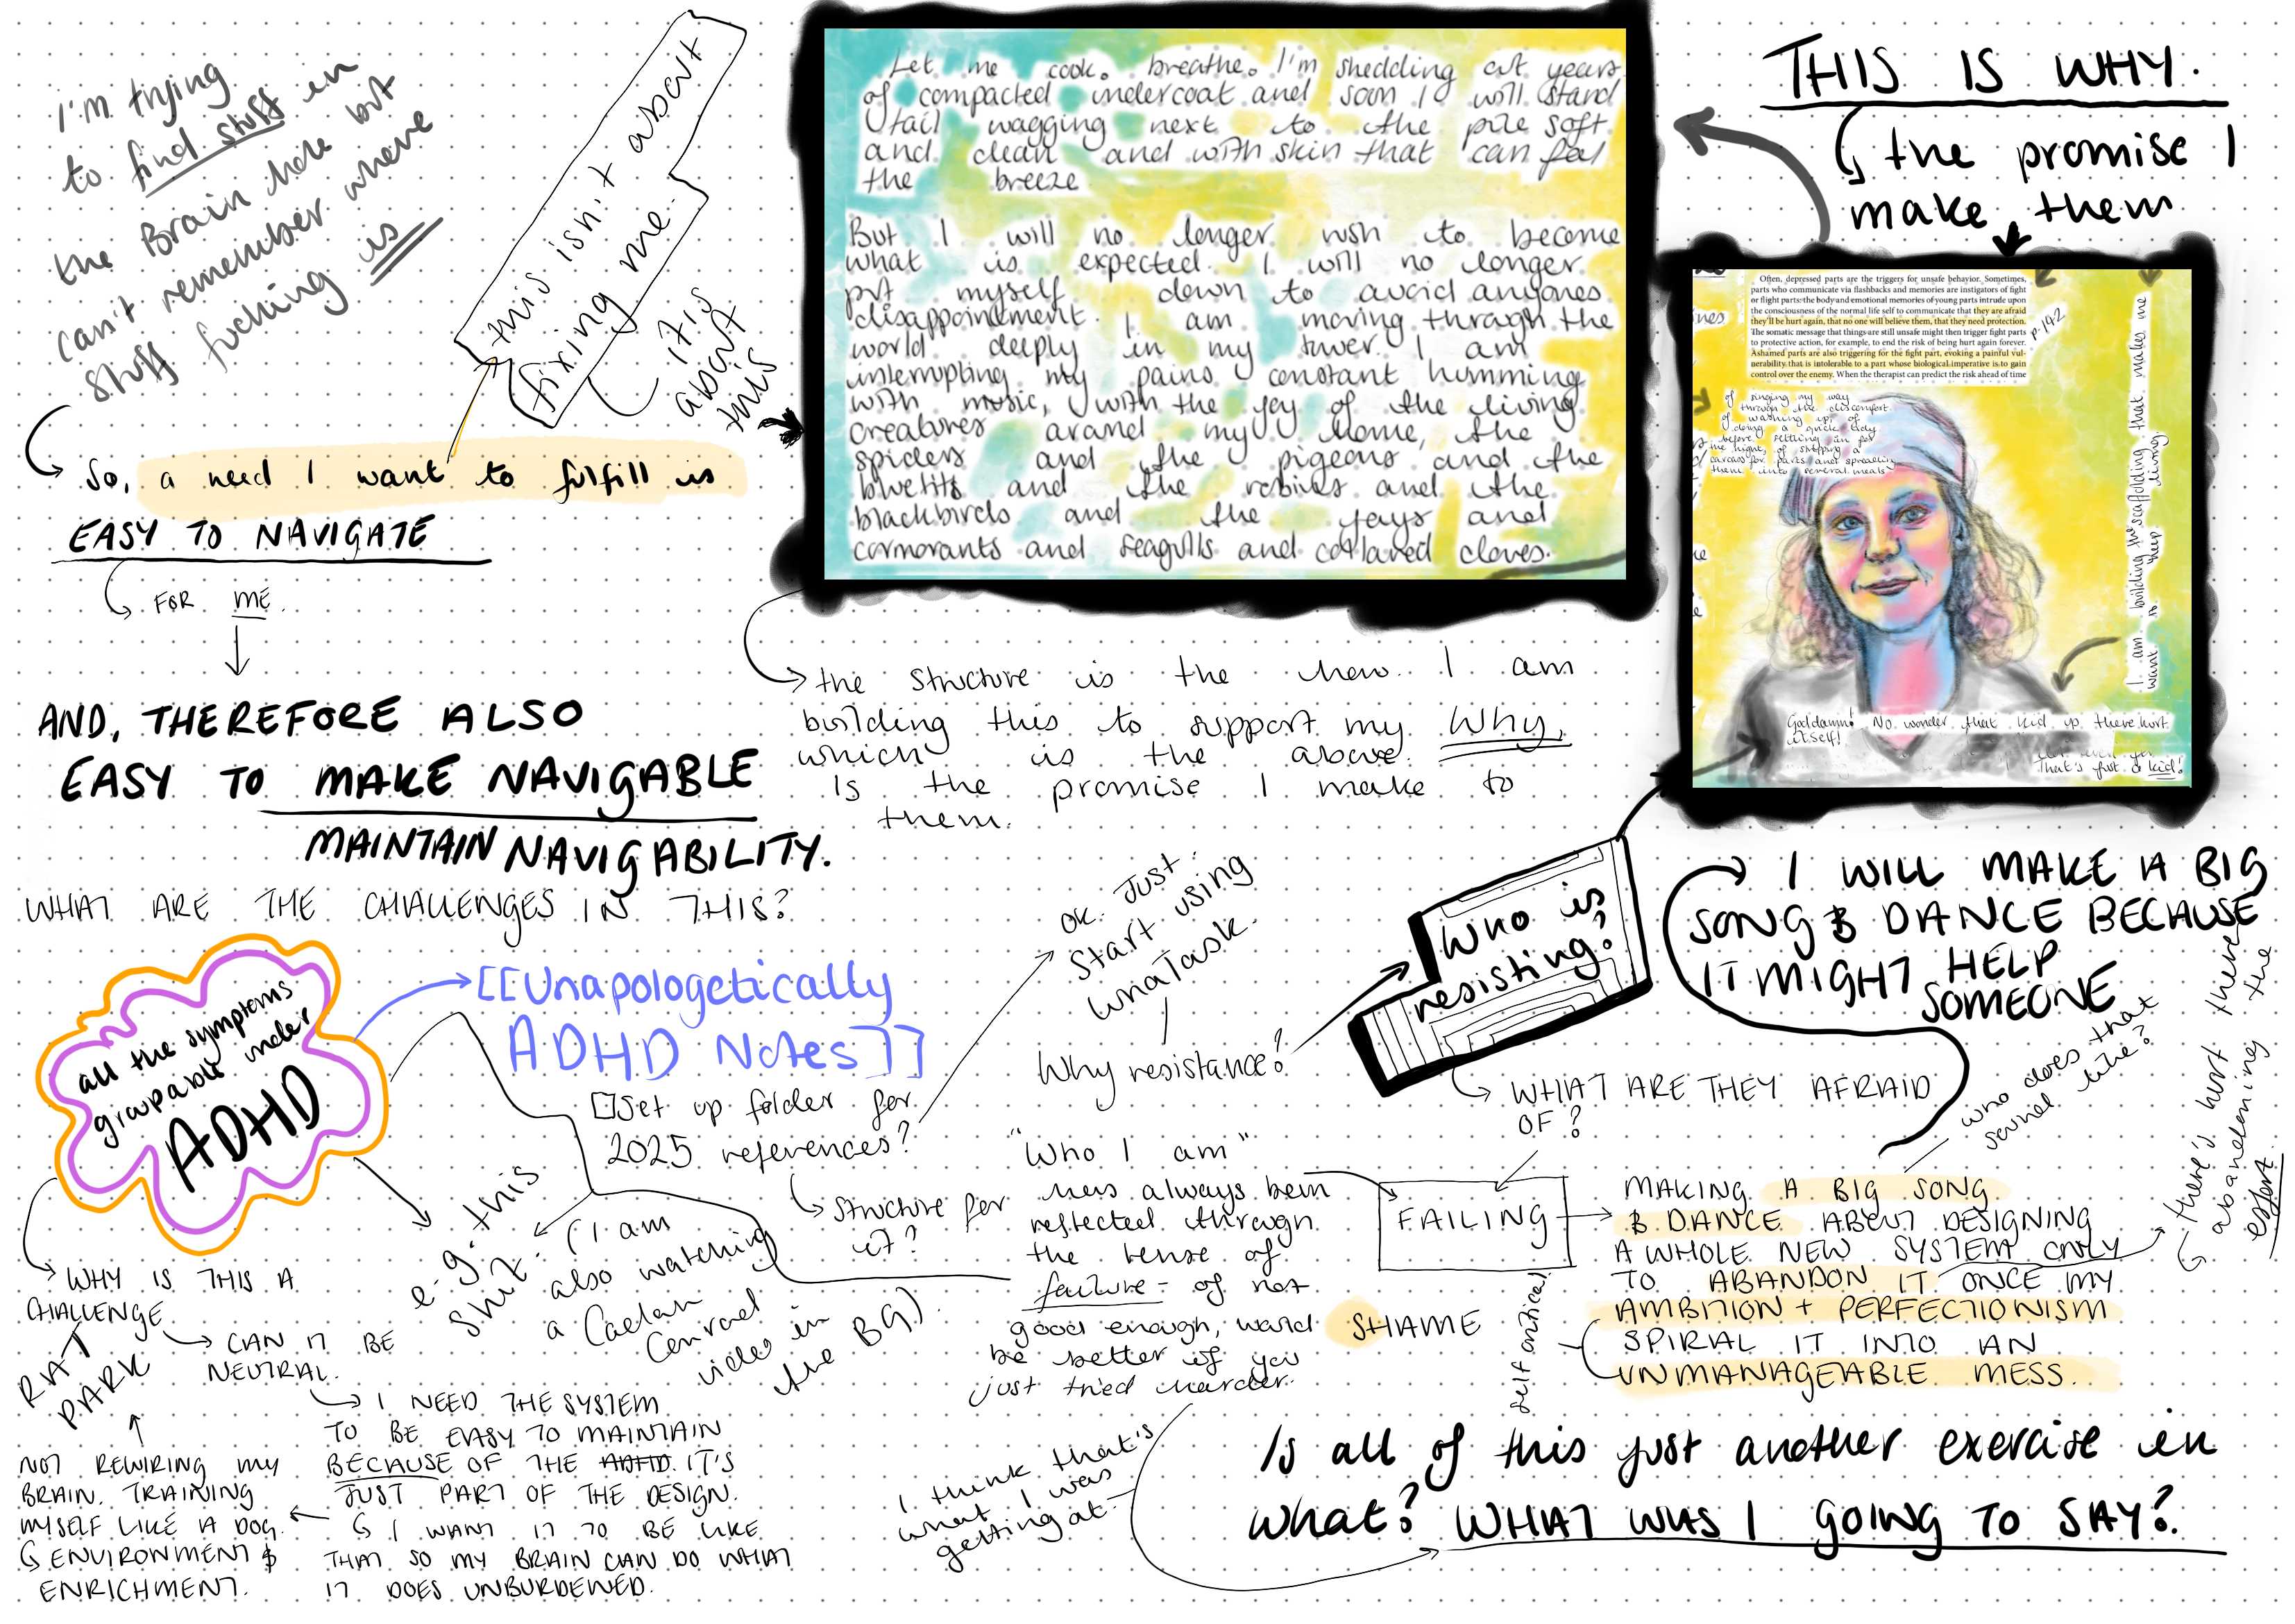 I'm trying
to find stuff in
the Brain here but
can't remember where
stuff fucking is
this isn't about
fixing me.
it is
about
this
So, a need I want to fulfill is
EASY TO NAVIGATE
FOR ME.
AND, THEREFORE ALSO
EASY TO MAKE NAVIGABLE
MAINTAIN NAVIGABILITY.
Let me cook. breathe. I'm shedding out years
of compacted undercoat and soon I will stand
tail wagging next to the pile soft
and clean and with skin that can feel
the breeze
But I will no longer rush to become
what is expected. I will no longer
put myself down to avoid anyones
disappointment. I am moving through the
world deeply in my power. I am
interrupting my pains constant humming
with music, with the joy of the living
creatures around my home, the
spiders and the pigeons and the
bluetits and the robins and the
blackbirds and the jays and
cormorants and seagulls and collared doves.
the structure is the how. I am
building this to support my Why,
which is the above.
Is the promise I make to
them.
THIS IS WHY.
the promise I
make them
Often, depressed parts are the triggers for unsafe behavior. Sometimes,
parts who communicate via flashbacks and memories are instigators of fight
or flight parts: the body and emotional memories of young parts intrude upon
the consciousness of the normal life self to communicate that they are afraid
they'll be hurt again, that no one will believe them, that they need protection.
The somatic message that things are still unsafe might then trigger fight parts
to protective action, for example, to end the risk of being hurt again forever.
Ashamed parts are also triggering for the fight part, evoking a painful vul-
nerability that is intolerable to a part whose biological imperative is to gain
control over the enemy. When the therapist can predict the risk ahead of time
p.142
of singing my way
through the discomfort
of washing up, of
doing a quick tidy
before settling in for
the night, of stripping a
carcass for parts and spreading
them into several meals
I am building the scaffolding that makes me
want to keep living.
God damn! No wonder that kid up there hurt
itself!
That's just a kid!
WHAT ARE THE CHALLENGES IN THIS?
all the symptoms
groupable under
ADHD
[[Unapologetically
ADHD Notes]]
Set up folder for
2025 references?
Structure for
it?
OK. Just
Start using
WhaTask.
Why resistance?
Who is
resisting?
WHAT ARE THEY AFRAID
OF?
I WILL MAKE A BIG
SONG & DANCE BECAUSE
IT MIGHT HELP
SOMEONE
who does that
sound like?
there's hurt there
there's hurt
abandoning the
effort
e.g. this
shit.
(I am
also watching
a Caelan
Conrad
video in
the BG)
"Who I am"
has always been
reflected through
the lense of
failure - of not
good enough, would
be better if you
just tried harder.
FAILING
SHAME
self critical
MAKING A BIG SONG
& DANCE ABOUT DESIGNING
A WHOLE NEW SYSTEM ONLY
TO ABANDON IT ONCE MY
AMBITION + PERFECTIONISM
SPIRAL IT INTO AN
UNMANAGEABLE MESS.
WHY IS THIS A
CHALLENGE
CAN IT BE
NEUTRAL.
RAT
PARK
NOT REWIRING MY
BRAIN. TRAINING
MYSELF LIKE A DOG.
ENVIRONMENT &
ENRICHMENT.
I NEED THE SYSTEM
TO BE EASY TO MAINTAIN
BECAUSE OF THE ADHD. IT'S
JUST PART OF THE DESIGN.
I WANT IT TO BE LIKE
THAT SO MY BRAIN CAN DO WHAT
IT DOES UNBURDENED.
I think that's
what I was
getting at
Is all of this just another exercise in
what? WHAT WAS I GOING TO SAY?